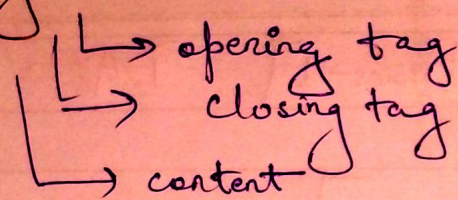 opening tag
closing tag
content